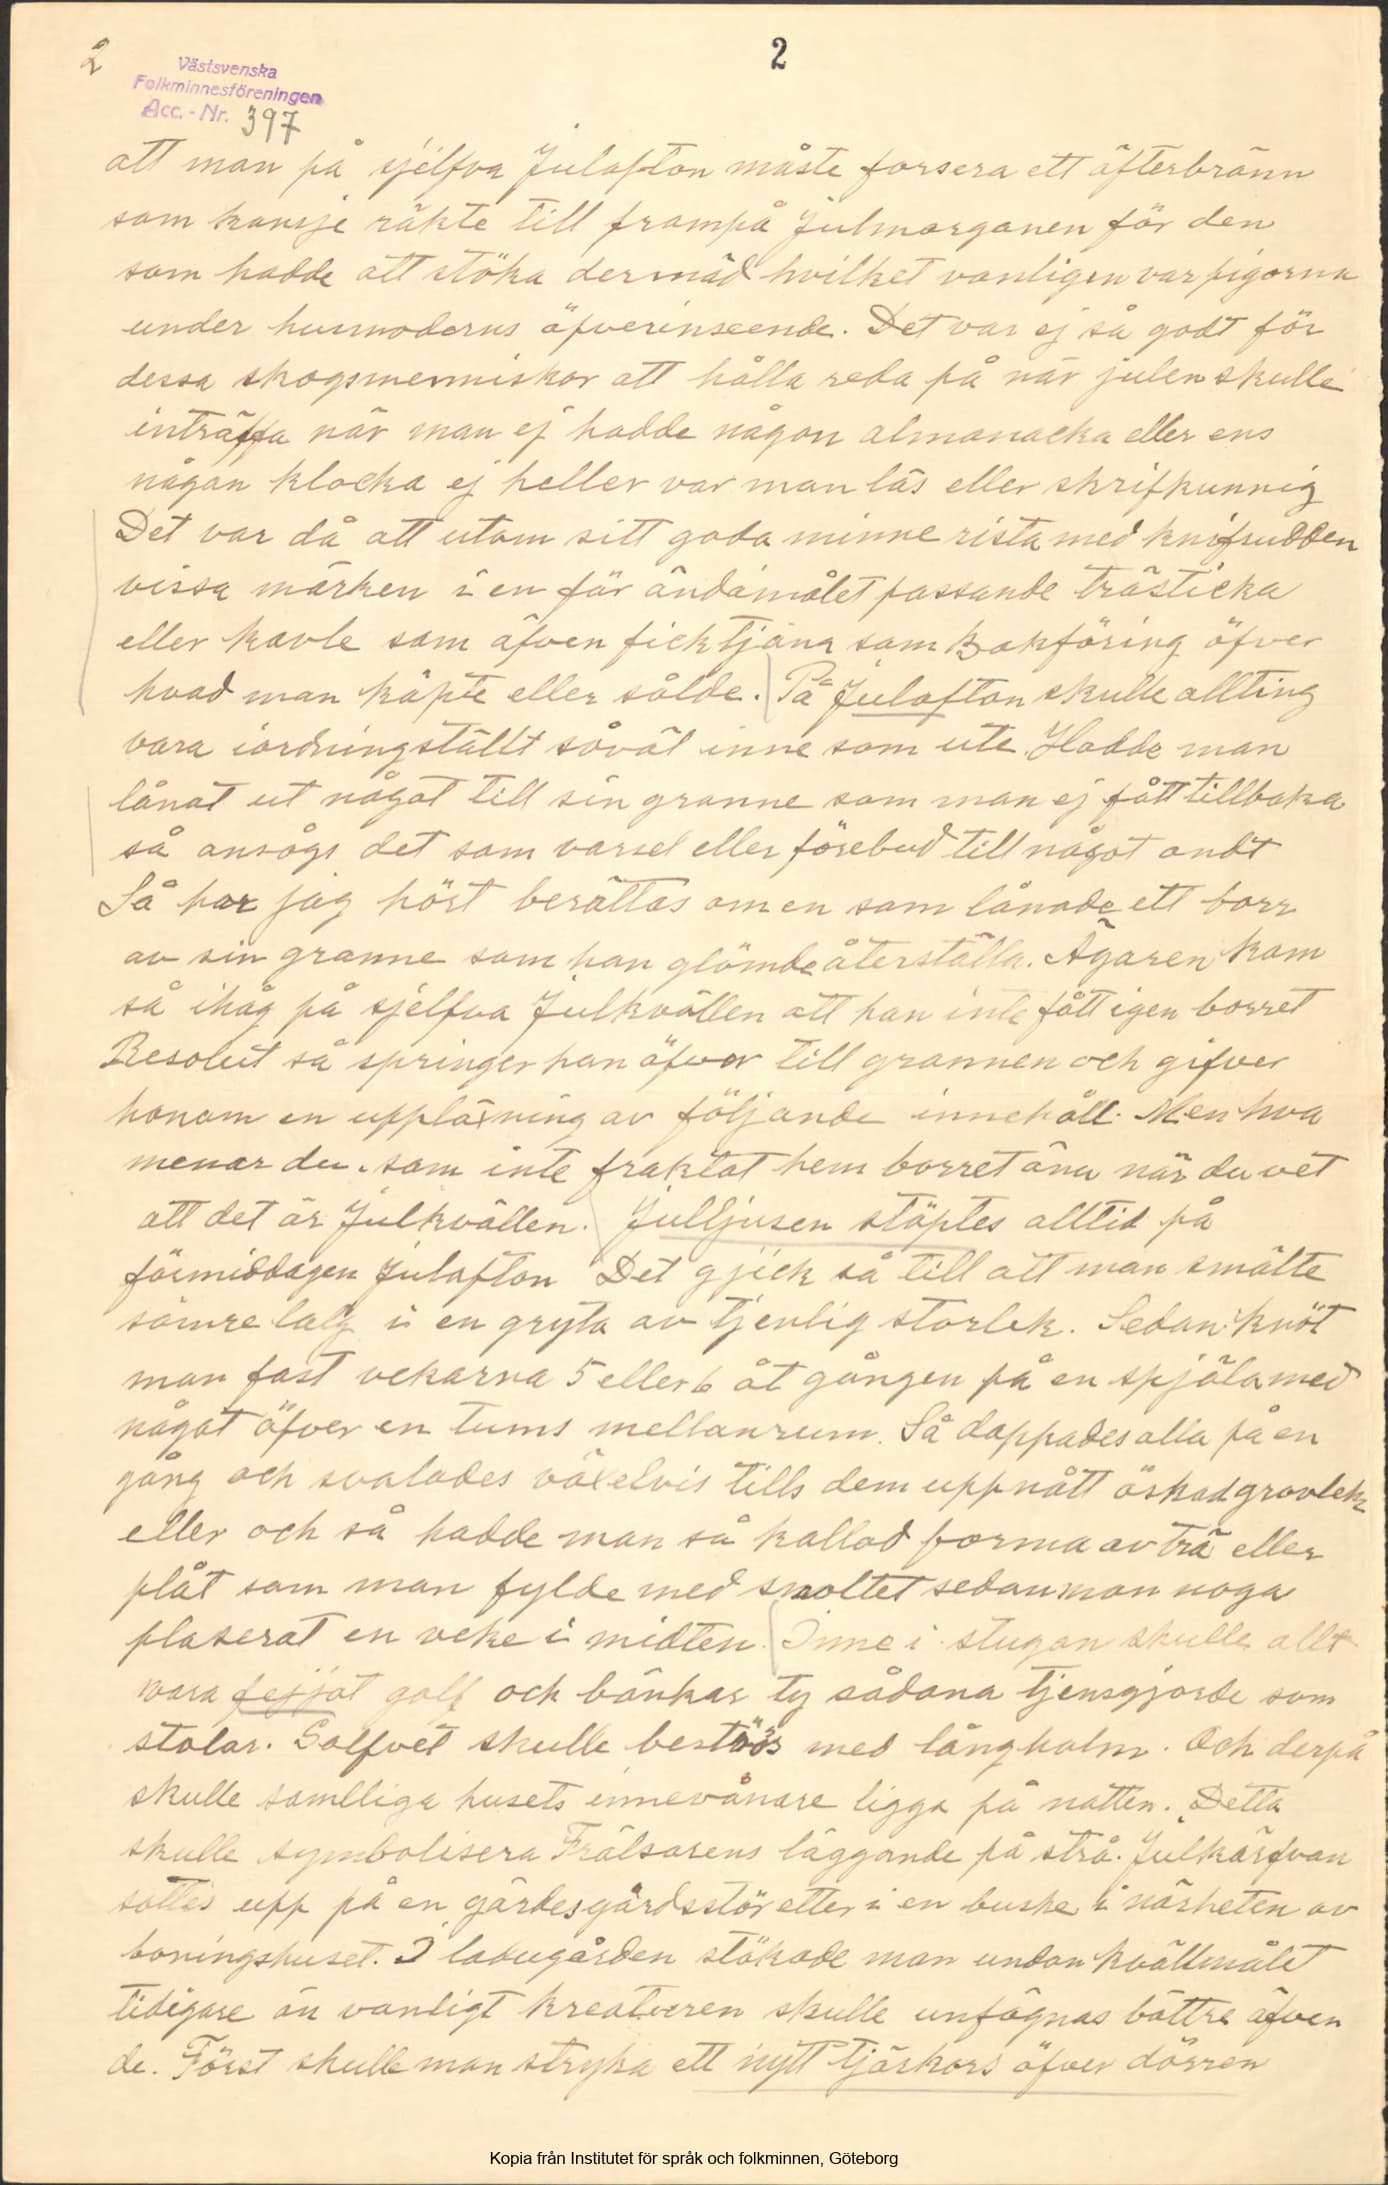 2
2
Västsvenska
Folkminnesföreningen
Acc. - Nr. 397
att man på sjelfva Julafton måste forsera ett äfterbränn
som kansje räkte till frampå Julmorgonen för den
som hadde att stöka dermäd hvilket vanligen var pigorna
under husmoderns öfverinseende. Det var ej så godt för
dessa skogsmenniskor att hålla reda på när julen skulle
inträffa när man ej hadde någon almanacka eller ens
någon klocka ej heller var man läs eller skrifkunnig
Det var då att utom sitt goda minne rista med knifsudden
vissa märken i en för ändamålet passande trästicka
eller kavle som äfven fick tjäna som Bokföring öfver
hvad man köpte eller sålde. På Julafton skulle allting
vara iordningställt såväl inne som ute. Hadde man
lånat ut något till sin granne som man ej fått tillbaka
så ansågs det som varsel eller förebud till något ondt
Så har jag hört berättas om en som lånade ett borr
av sin granne som han glömde återställa. Ägaren kom
så ihåg på sjelfva Julkvällen att han inte fått igen borret
Resolut så springer han öfver till grannen och gifver
honom en uppläxning av följande innehåll. Men hva
menar du som inte fraktat hem borret änu när du vet
att det är Julkvällen. Julljusen stöptes alltid på
förmiddagen Julafton Det gjick så till att man smälte
sämre talg i en gryta av tjenlig storlek. Sedan knöt
man fast vekarna 5 eller 6 åt gången på en spjäla med
något öfver en tums mellanrum. Så doppades alla på en
gång och svalades växelvis tills dem uppnått öskad grovlek
eller och så hadde man så kallad forma av trä eller
plåt som man fylde med smoltet sedan man noga
plaserat en veke i midten. Inne i stugan skulle allt
vara fejjat golf ock bänkar ty sådana tjensgjorde som
stolar. Golfvet skulle beströs med långhalm. Och derpå
skulle samlliga husets innevånare ligga på natten. Detta
skulle symbolisera Frälsarens läggande på strå. Julkärfvan
sattes upp på en gärdesgårdsstör eller i en buske i närheten av
boningshuset. I ladugården stökade man undan kvällmålet
tidigare än vanligt kreaturen skulle unfägnas bättre äfven
de. Först skulle man stryka ett nytt tjärkors öfver dörren
Kopia från Institutet för språk och folkminnen, Göteborg